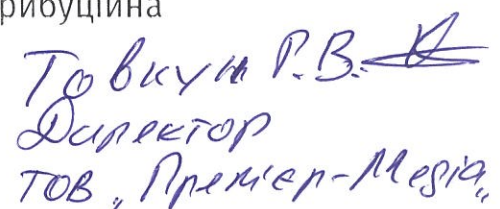 рибуційна
Товкун Р.В.
Директор
ТОВ „Прем'єр-Медіа„